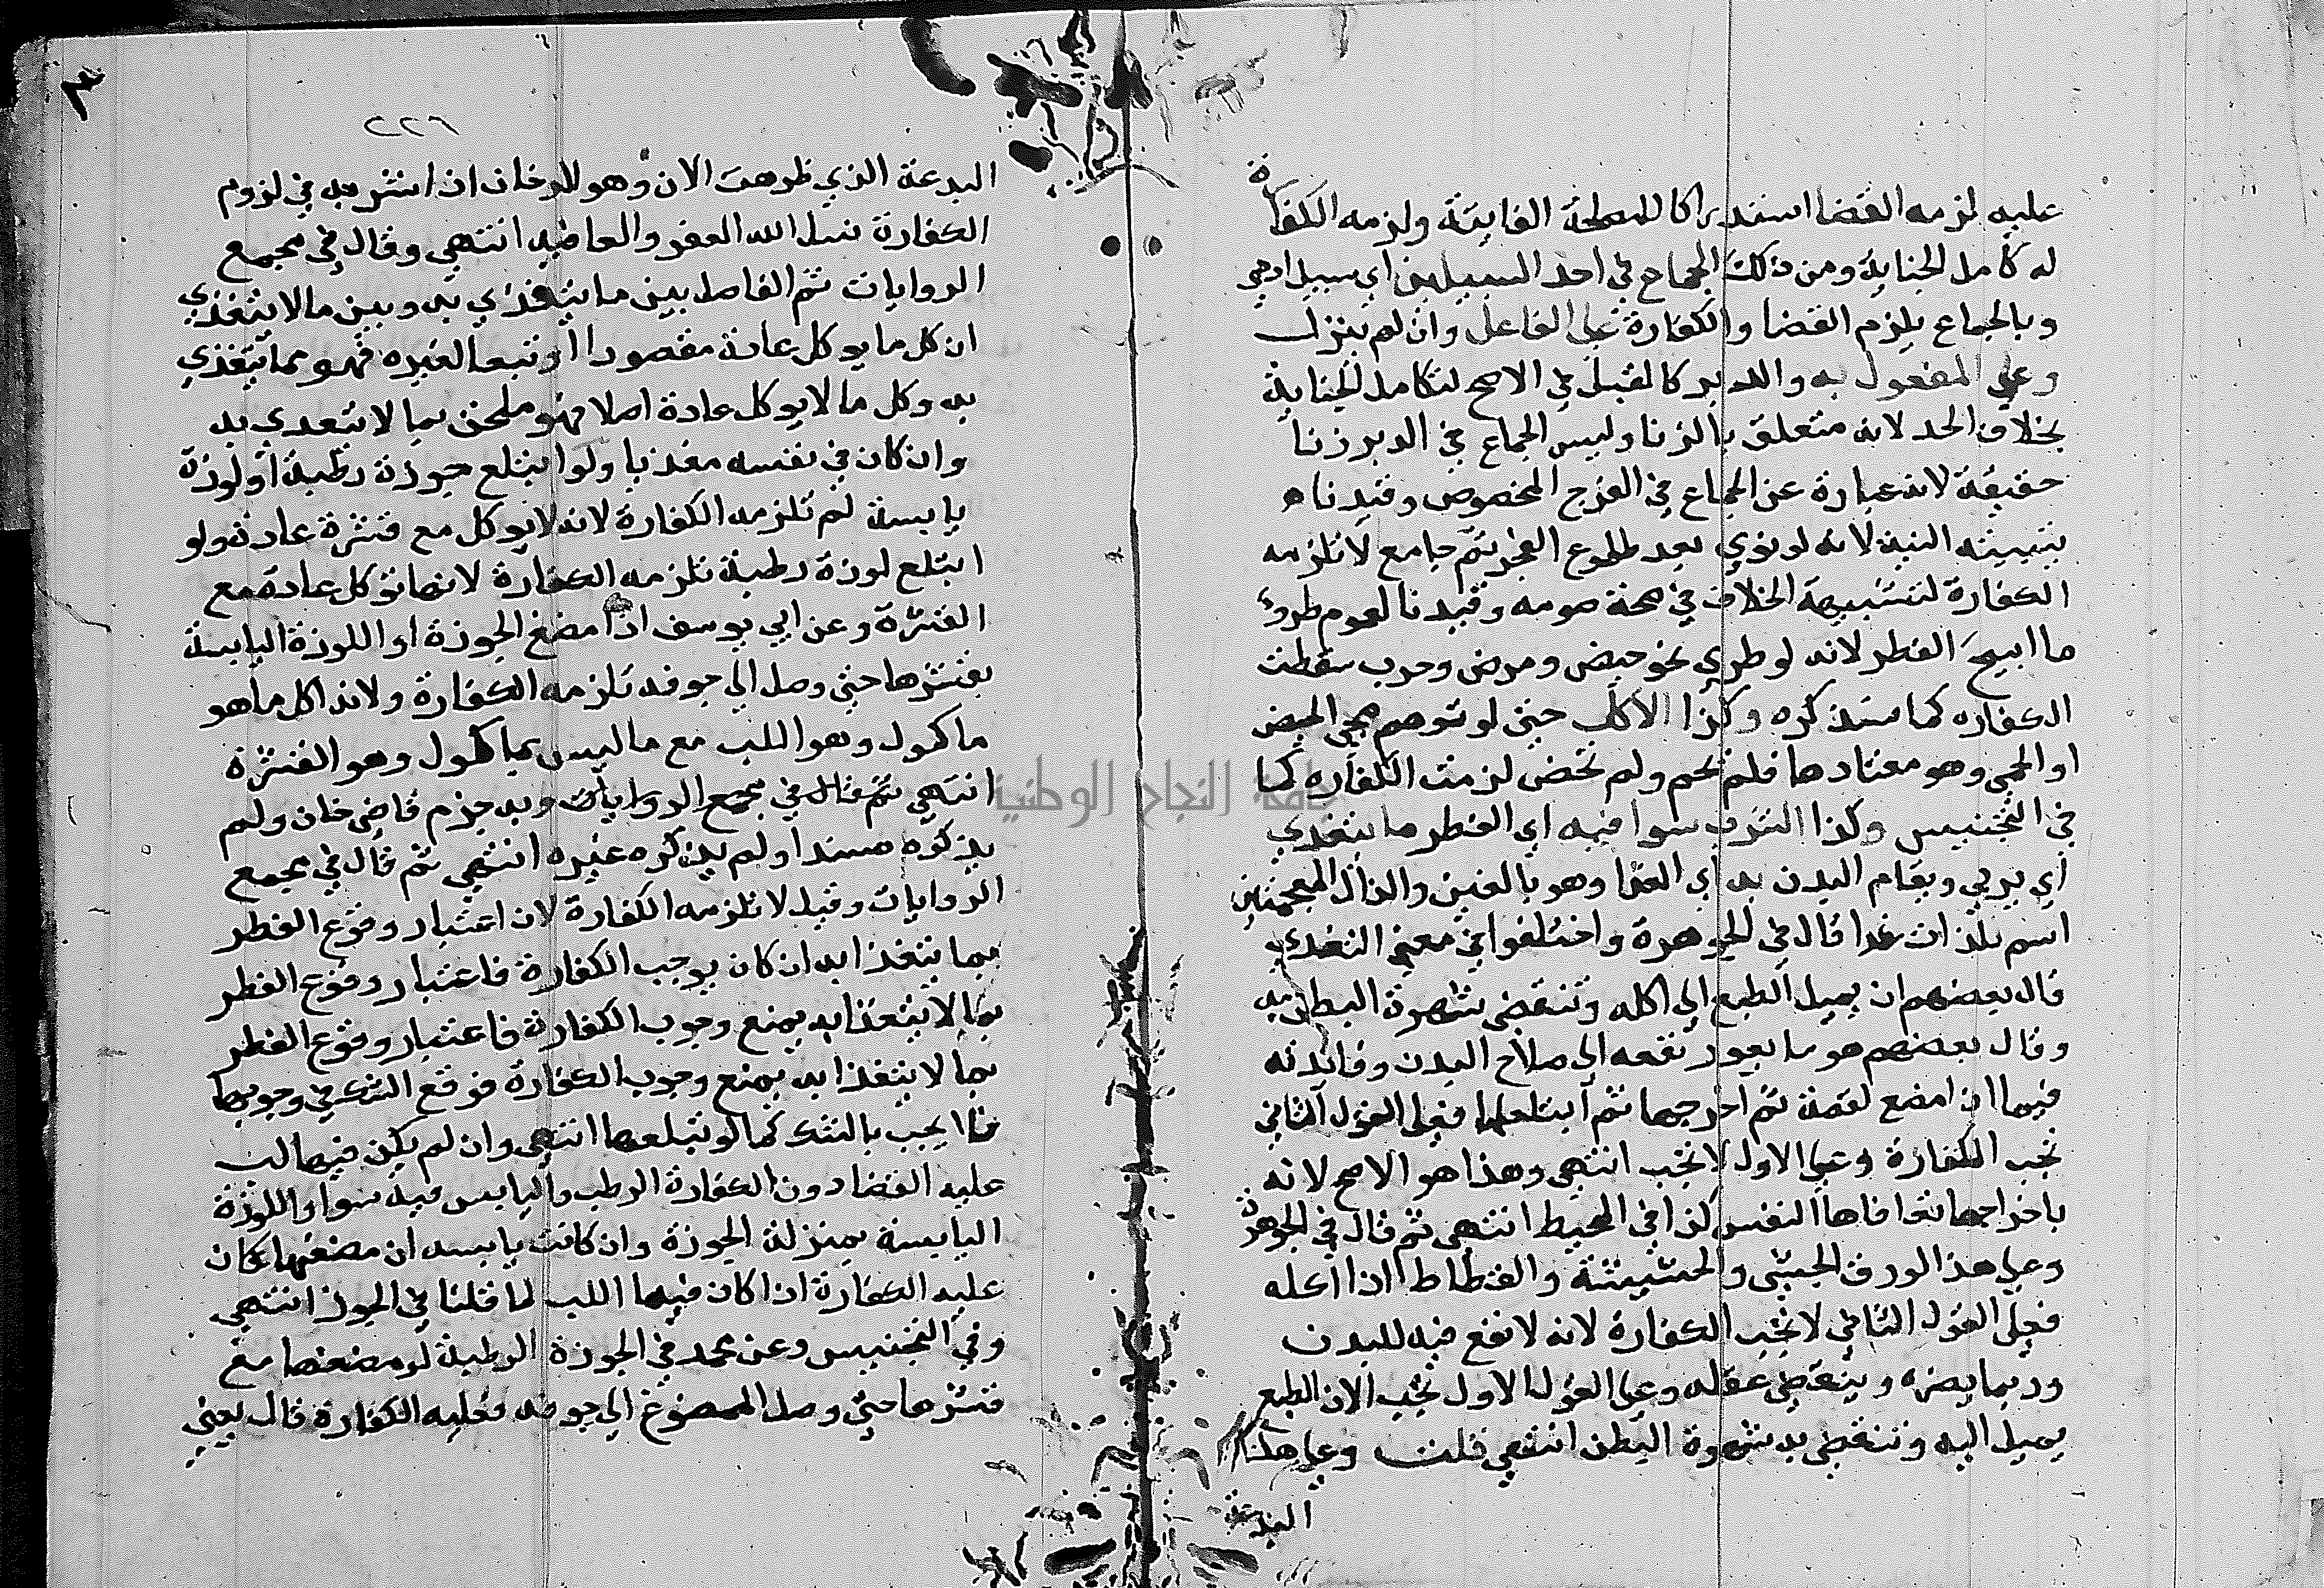 عليه لزمه القضا استدراكا للمصلحة الفايتة ولزمه الكفارة
له كامل الجناية ومن ذلك الجماع في احد السبيلين اي سبيل ادمي
وبالجماع يلزم القضا والكفارة على الفاعل وان لم ينزل
وعلى المفعول به والدبر كالقبل في الاصح لتكامل الجناية
بخلاف الحد لانه متعلق بالزنا وليس الجماع في الدبر زنا
حقيقة لانه عبارة عن الجماع في الفرج المخصوص وقيدناه
بتبييته النية لانه لو نوي بعد طلوع الفجر ثم جامع لا تلزمه
الكفارة لتشبيهة الخلاف في صحة صومه وقيدنا لعدم طروء
ما ابيح الفطر لانه لو طري نحو حيض ومرض وحرب سقطت
الكفاره كما سنذكره وكذا الاكل حتى لو توهم مجى الحيض
او الحمى وهو معتادها فلم يحم ولم تحض لزمت الكفاره كما
في التجنيس وكذا الشرب سوا فيه اي الفطر ما يتغذي
اي يربي ويقام البدن به اي الغذا وهو بالغين والذال المعجمتين
اسم للذات غدا قال في الجوهرة واختلفوا في معنى التغذي
قال بعضهم ان يميل الطبع الى اكله وتنقضى شهوة البطن به
وقال بعضهم هو ما يعود نفعه الى صلاح البدن وفائدته
فيما اذا مضغ لقمة ثم اخرجها ثم ابتلعها فعلى القول الثاني
تجب الكفارة وعلى الاول لا تجب انتهى وهذا هو الاصح لانه
باخراجها تعافاها النفس كذا في المحيط انتهى ثم قال في الجوهرة
وعلى هذا الورق الحبشي والحشيشة والقطاط اذا اكله
فعلى القول الثاني لا تجب الكفارة لانه لا نفع فيه للبدن
وربما يضره وينقص عقله وعلى القول الاول تجب لان الطبع
يميل اليه وتنقضى به شهوة البطن انتهى قلت وعلى هذا
البدعة
٢٢٦
البدعة الذي ظهرت الان وهو الدخان اذا شربه في لزوم
الكفارة نسل الله العفو والعافيه انتهي وقال في مجمع
الروايات ثم الفاصل بين ما يتغذي به وبين ما لا يتغذي
ان كل ما يوكل عادة مقصودا او تبعا لغيره فهو مما يتغذي
به وكل ما لا يوكل عادة اصلا فهو ملحق بما لا يتغدي به
وان كان في نفسه مغذيا ولو ابتلع جوزة رطبة او لوزة
يابسة لم تلزمه الكفارة لانه لا يوكل مع قشرة عادة ولو
ابتلع لوزة رطبة تلزمه الكفارة لانها توكل عادة مع
القشرة وعن ابي يوسف اذا مضغ الجوزة او اللوزة اليابسة
بقشرها حتى وصل الي جوفه تلزمه الكفارة ولانه اكل ما هو
ماكول وهو اللب مع ما ليس بماكول وهو القشرة
انتهي ثم قال في مجمع الروايات وبه جزم قاضي خان ولم
يذكره مسندا ولم يذكره غيره انتهى ثم قال في مجمع
الروايات وقيل لا تلزمه الكفارة لان اعتبار وقوع الفطر
بما يتغذا به ان كان يوجب الكفارة فاعتبار وقوع الفطر
بما لا يتغذا به يمنع وجوب الكفارة فاعتبار وقوع الفطر
بما لا يتغذا به يمنع وجوب الكفارة فوقع الشك في وجوبها
فلا يجب بالشك كما لو ابتلعها انتهى وان لم يكن فيها لب
عليه القضا دون الكفارة الرطب واليابس فيه سوا واللوزة
اليابسة بمنزلة الجوزة وان كانت يابسه ان مضغها كان
عليه الكفارة اذا كان فيها اللب لما قلنا في الجوز انتهى
وفي التجنيس وعن محمد في الجوزة الرطبة لو مضغها مع
قشرها حتى وصل الممضوغ الي جوفه فعليه الكفارة قال يعني
جامعة النجاح الوطنية